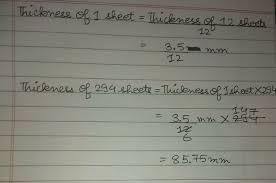 Thickness of 1 sheet = Thickness of 12 sheets
12
= 3.5 mm
12
Thickness of 294 sheets = Thickness of 1 sheet × 294
147
= 3.5 mm × 294
12
6
= 85.75 mm